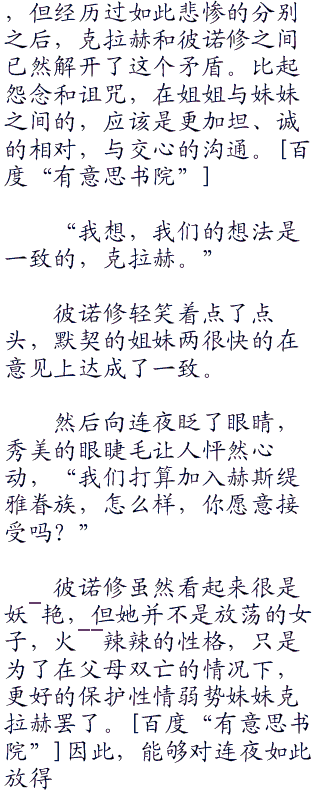 ，但经历过如此悲惨的分别
之后，克拉赫和彼诺修之间
已然解开了这个矛盾。比起
怨念和诅咒，在姐姐与妹妹
之间的，应该是更加坦、诚
的相对，与交心的沟通。[百
度“有意思书院”]
“我想，我们的想法是
一致的，克拉赫。”
彼诺修轻笑着点了点
头，默契的姐妹两很快的在
意见上达成了一致。
然后向连夜眨了眼睛，
秀美的眼睫毛让人怦然心
动，“我们打算加入赫斯缇
雅眷族，怎么样，你愿意接
受吗？”
彼诺修虽然看起来很是
妖¯艳，但她并不是放荡的女
子，火¯¯辣辣的性格，只是
为了在父母双亡的情况下，
更好的保护性情弱势妹妹克
拉赫罢了。[百度“有意思书
院”]因此，能够对连夜如此
放得